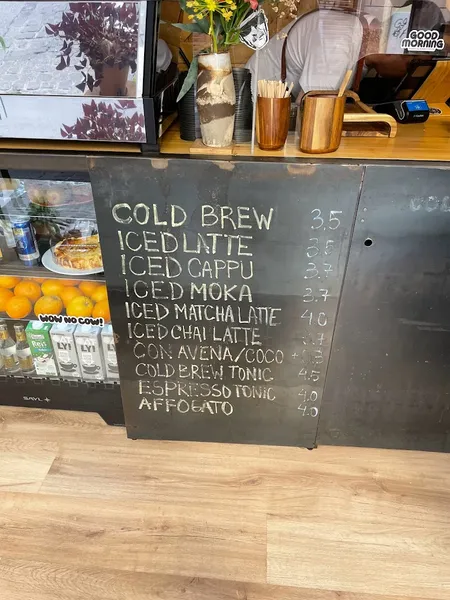 GOOD
MORNING
COLD BREW 3.5
ICED LATTE
ICED CAPPU 3.7
ICED MOKA 3.7
ICED MATCHA LATTE 4.0
ICED CHAI LATTE
CON AVENA/COCO
COLD BREW TONIC 4.5
ESPRESSO TONIC 4.0
AFFOGATO 4.0
WOW NO COW!